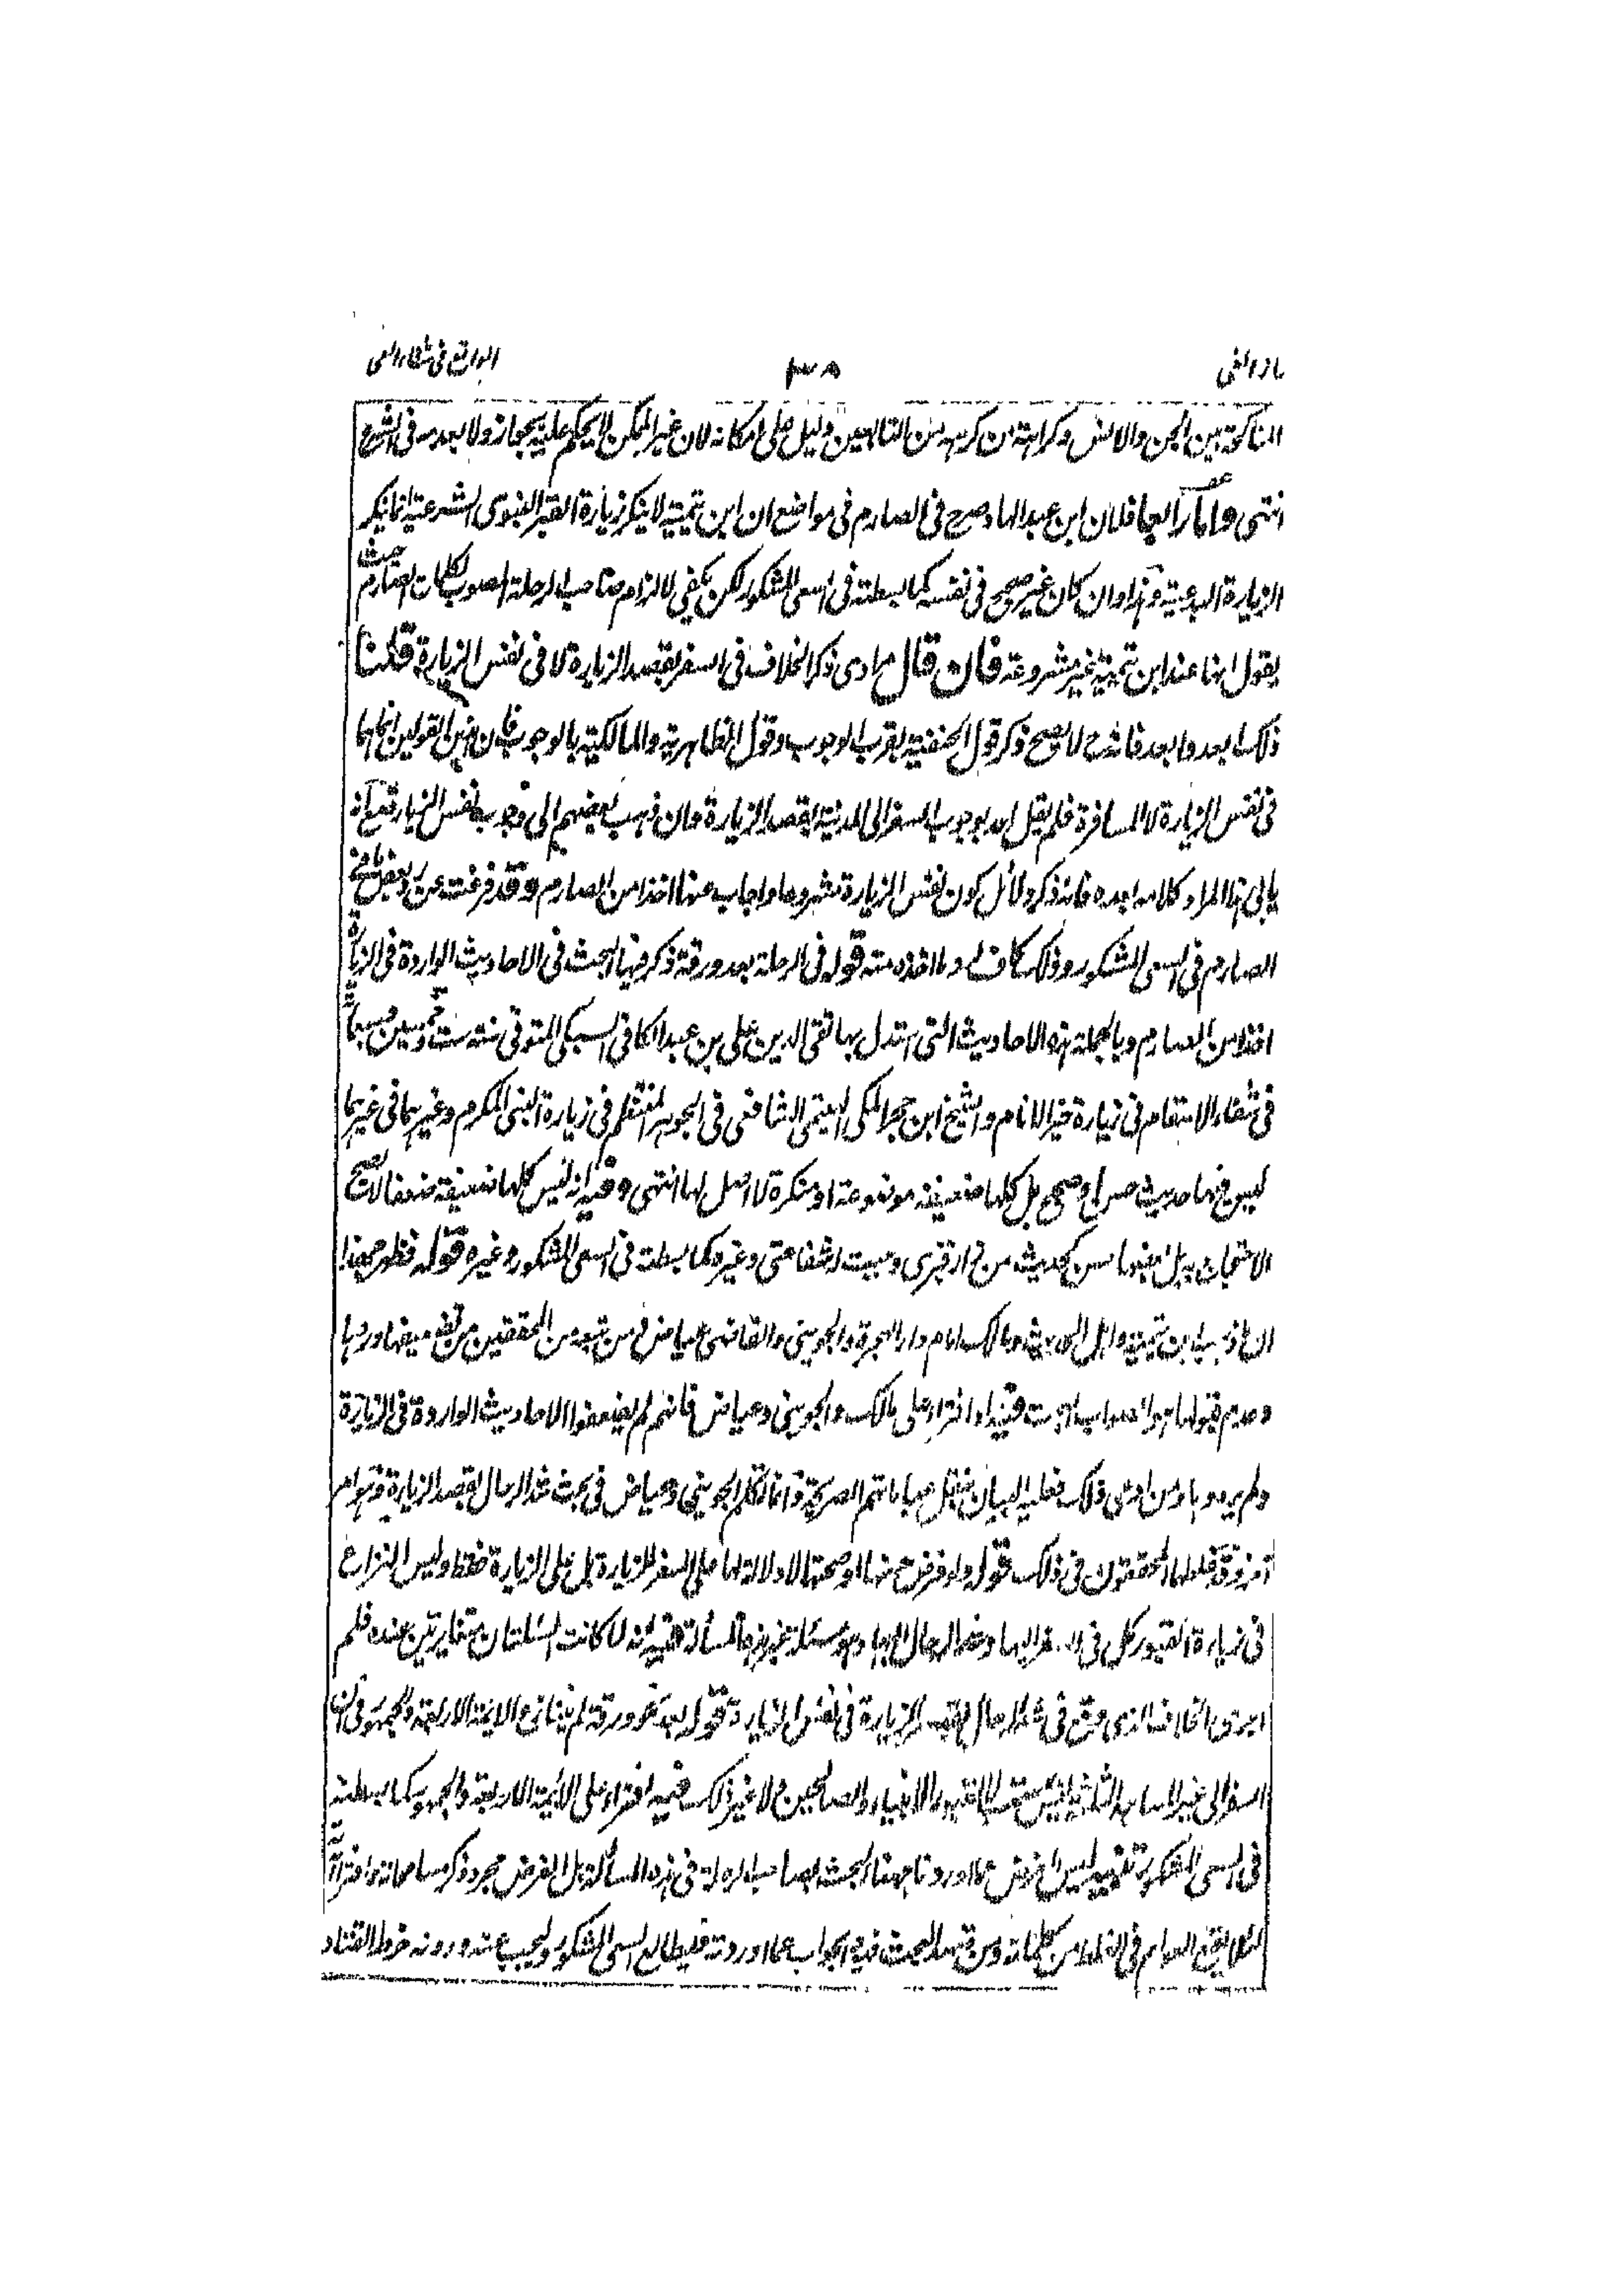 ابراز الغي ٣٨ الواقع في شفاء العي
المناكحة بين الجن والانس وكراهة من كرهه من التابعين دليل على امكانه لان غير الممكن لا يحكم عليه بجواز ولا بعدمه في الشرع
انتهى واما رابعا فلان ابن عبد الهاد صرح في الصارم في مواضع ان ابن تيمية لا ينكر زيارة القبر النبوي الشرعية انما ينكر
الزيارة البدعية وهذا وان كان غير صحيح في نفسه كما بسطته في السعي المشكور لكن يكفي لالزام صاحب الرحلة المصوب لكلمات الصارم حيث
يقول انها عند ابن تيمية غير مشروعة فان قال مرادى ذكر الخلاف في السفر بقصد الزيارة لا في نفس الزيارة قلنا
ذلك ابعد وابعد فانه لا يصح ذكر قول الحنفية بقرب الوجوب وقول الظاهرية والمالكية بالوجوب فان هذين القولين انما هما
في نفس الزيارة لا المسافرة فلم يقل احد بوجوب السفر الى المدينة بقصد الزيارة وان ذهب بعضهم الى وجوب نفس الزيارة مع انه
يابى هذا المراد كلامه بعده فانه ذكر دلائل كون نفس الزيارة مشروعا واجاب عنها اخذا من الصارم وقد فرغت عن رد بعض ما في
الصارم في السعي المشكور وذلك كاف لرد ما اخذه منه قوله في الرحلة بعد ورقة ذكر فيها البحث في الاحاديث الواردة في الزيارة
اخذا من الصارم وبالجملة هذه الاحاديث التى استدل بها تقي الدين علي بن عبد الكافي السبكي المتوفى سنة ست وخمسين وسبعمائة
في شفاء الاسقام في زيارة خير الانام والشيخ ابن حجر المكي الهيتمي الشافعي في الجوهر المنظم في زيارة النبي المكرم وغيرهما في غيرهما
ليس فيها حديث حسن او صحيح بل كلها ضعيفة موضوعة او منكرة لا اصل لها انتهى وفيه انه ليس كلها ضعيفة ضعفا لا يصح
الاحتجاج به بل بعضها حسن كحديث من زار قبري وجبت له شفاعتي وغيره كما بسطت في السعي المشكور وغيره قوله فظهر بهذا
ان ما ذهب اليه ابن تيمية واهل الحديث ومالك امام دار الهجرة والجويني والقاضي عياض ومن تبعه من المحققين من تضعيفها وردها
وعدم قبولها هو الصواب البحت وفيه انه افتراء على مالك والجويني وعياض فانهم لم يضعفوا الاحاديث الواردة في الزيارة
ولم يردوها ومن ادعى ذلك فعليه البيان بنقل عباراتهم الصريحة وانما تكلم الجويني وعياض في بحث شد الرحال بقصد الزيارة وهو امر
آخر وقد غلطهما المحققون في ذلك قوله ولو فرض حسنها او صحتها لا دلالة لها على السفر للزيارة بل على الزيارة فقط وليس النزاع
في زيارة القبور بل في السفر اليها وشد الرحال اليها وهو مسئلة غير هذه المسألة ففيه انه لما كانت المسئلتان متغايرتين عنده فلم
اجرى الخلاف الذي وقع في شد الرحال بقصد الزيارة في نفس الزيارة قوله بعد نحو ورقة لم يتنازع الائمة الاربعة والجمهور في ان
السفر الى غير المساجد الثلاثة ليس بمستحب لا لقبور الانبياء والصالحين ولا غير ذلك ففيه افتراء على الائمة الاربعة والجمهور كما بسطته
في السعي المشكور تنبيه ليس الغرض مما اوردنا ههنا البحث بصاحب الرحلة في هذه المسألة بل الغرض مجرد ذكر مسامحاته وافتراآته
لئلا يقع العوام في الغلط من كلماته ومن قصد البحث فيه والجواب عما اوردته فليطالع السعي المشكور وليجب عنه ودونه خرط القتاد